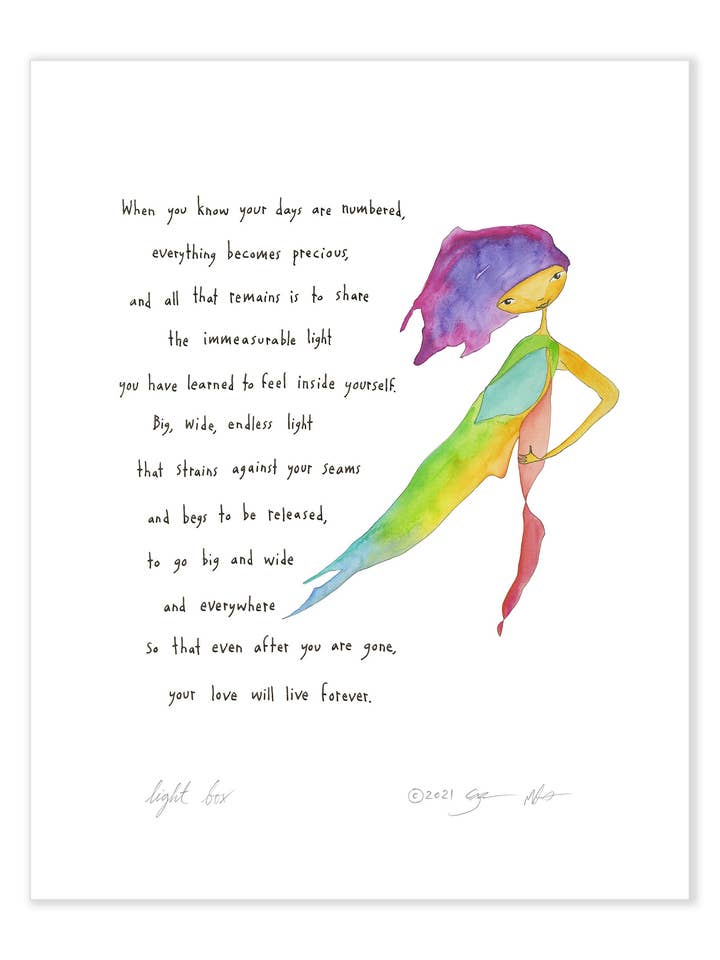 When you know your days are numbered,
everything becomes precious,
and all that remains is to share
the immeasurable light
you have learned to feel inside yourself.
Big, wide, endless light
that strains against your seams
and begs to be released,
to go big and wide
and everywhere
so that even after you are gone,
your love will live forever.
light box
©2021